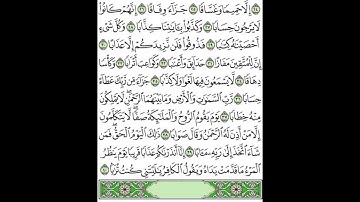 ﴿٢٤﴾ إِلَّا حَمِيمًا وَغَسَّاقًا ﴿٢٥﴾ جَزَآءً وِفَاقًا ﴿٢٦﴾ إِنَّهُمْ كَانُوا۟
لَا يَرْجُونَ حِسَابًا ﴿٢٧﴾ وَكَذَّبُوا۟ بِـَٔايَـٰتِنَا كِذَّابًا ﴿٢٨﴾ وَكُلَّ شَىْءٍ
أَحْصَيْنَـٰهُ كِتَـٰبًا ﴿٢٩﴾ فَذُوقُوا۟ فَلَن نَّزِيدَكُمْ إِلَّا عَذَابًا ﴿٣٠﴾
إِنَّ لِلْمُتَّقِينَ مَفَازًا ﴿٣١﴾ حَدَآئِقَ وَأَعْنَـٰبًا ﴿٣٢﴾ وَكَوَاعِبَ أَتْرَابًا ﴿٣٣﴾ وَكَأْسًا
دِهَاقًا ﴿٣٤﴾ لَّا يَسْمَعُونَ فِيهَا لَغْوًا وَلَا كِذَّٰبًا ﴿٣٥﴾ جَزَآءً مِّن رَّبِّكَ عَطَآءً
حِسَابًا ﴿٣٦﴾ رَّبِّ ٱلسَّمَـٰوَٰتِ وَٱلْأَرْضِ وَمَا بَيْنَهُمَا ٱلرَّحْمَـٰنِ ۖ لَا يَمْلِكُونَ
مِنْهُ خِطَابًا ﴿٣٧﴾ يَوْمَ يَقُومُ ٱلرُّوحُ وَٱلْمَلَـٰٓئِكَةُ صَفًّا ۖ لَّا يَتَكَلَّمُونَ
إِلَّا مَنْ أَذِنَ لَهُ ٱلرَّحْمَـٰنُ وَقَالَ صَوَابًا ﴿٣٨﴾ ذَٰلِكَ ٱلْيَوْمُ ٱلْحَقُّ ۖ فَمَن
شَآءَ ٱتَّخَذَ إِلَىٰ رَبِّهِۦ مَـَٔابًا ﴿٣٩﴾ إِنَّآ أَنذَرْنَـٰكُمْ عَذَابًا قَرِيبًا يَوْمَ يَنظُرُ
ٱلْمَرْءُ مَا قَدَّمَتْ يَدَاهُ وَيَقُولُ ٱلْكَافِرُ يَـٰلَيْتَنِى كُنتُ تُرَٰبًۢا ﴿٤٠﴾